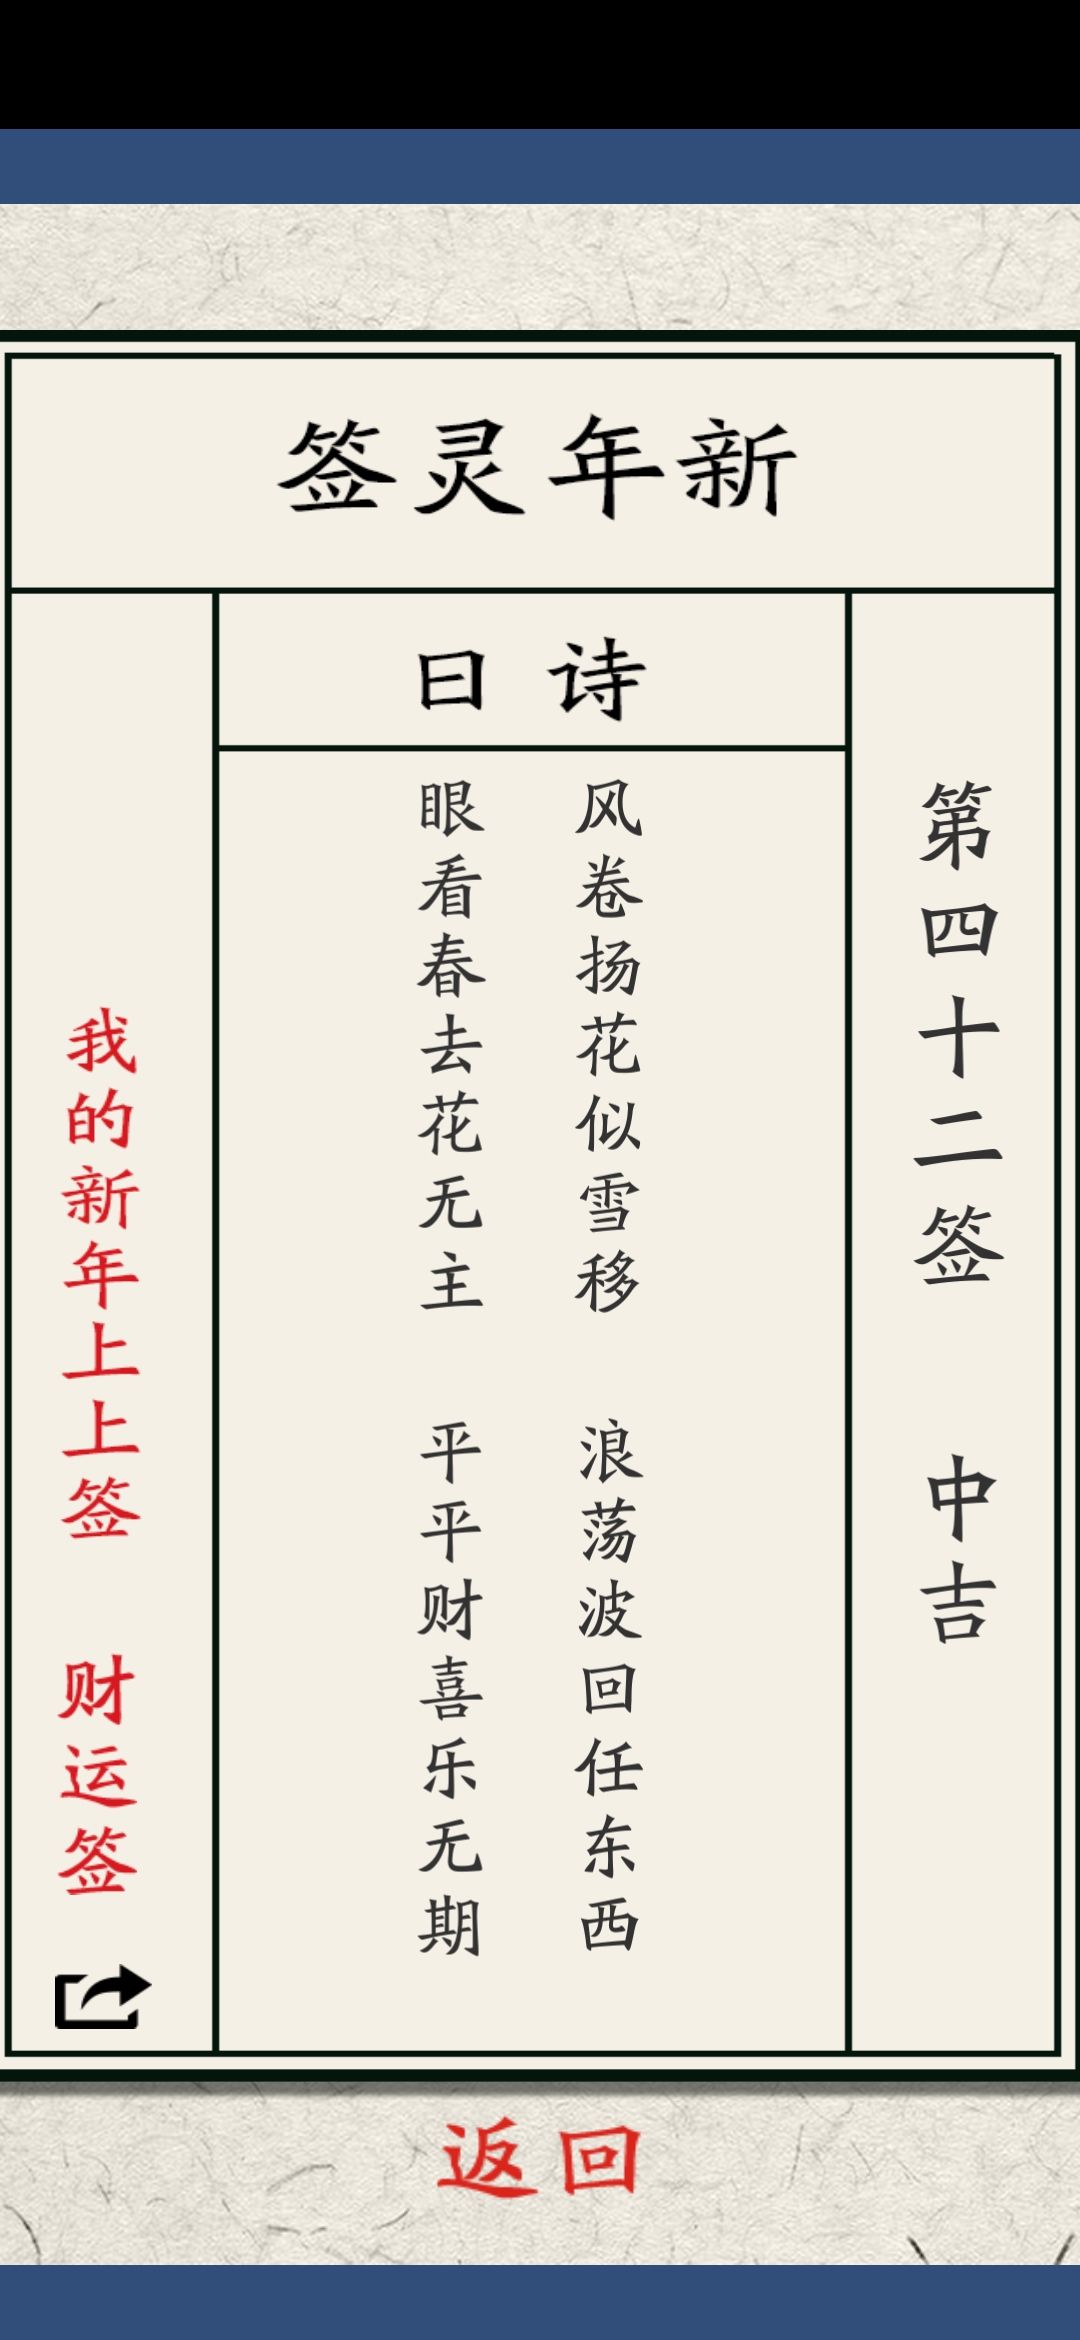 新年灵签
第四十二签 中吉
诗曰
风卷扬花似雪移 浪荡波回任东西
眼看春去花无主 平平财喜乐无期
我的新年上上签 财运签
返回